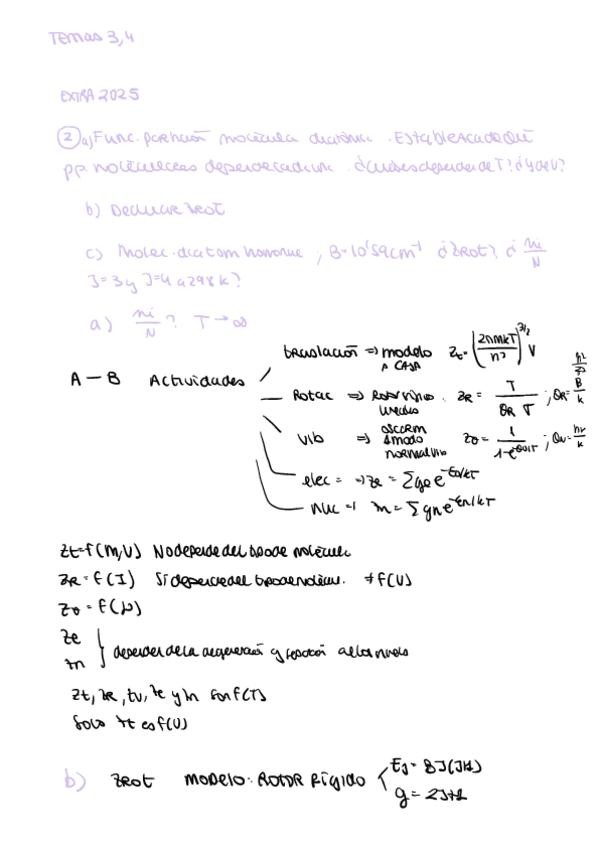 Temas 3,4
EXTRA 2025
2 a) Func. partición molécula diatómica. Establecer de qué
pp. moleculares depende cada una. ¿Cuáles dependen de T? ¿y de V?
b) Deducir Zrot
c) Molec. diatom homonuc, B=10'59cm⁻¹ ¿Zrot? ¿ ni/N
J=3 y J=4 a 298 k?
a) ni/N? T→∞
A-B Actividades
translación => modelo P CAJA Zt=(2πmkT/h²)^3/2 V
Rotac => Rotor rígido lineal ZR= T/θR σ ; θR= B/k
Vib => oscarm 1 modo normal vib Zv= 1/1-e^-θv/T ; θv= hν/k
elec => Ze = Σge e^-εe/kT
Nuc => Zn = Σgn e^-εn/kT
Zt=f(M,V) No depende del tipo de molécula
ZR=f(I) Sí depende del tipo de molec. ≠f(V)
Zv=f(ν)
Ze
Zn } dependen de la degeneración y
Zt, ZR, Zv, Ze y Zn son f(T)
Solo Zt es f(V)
b) ZROT MODELO: ROTOR RÍGIDO EJ= BJ(J+1)
g= 2J+1